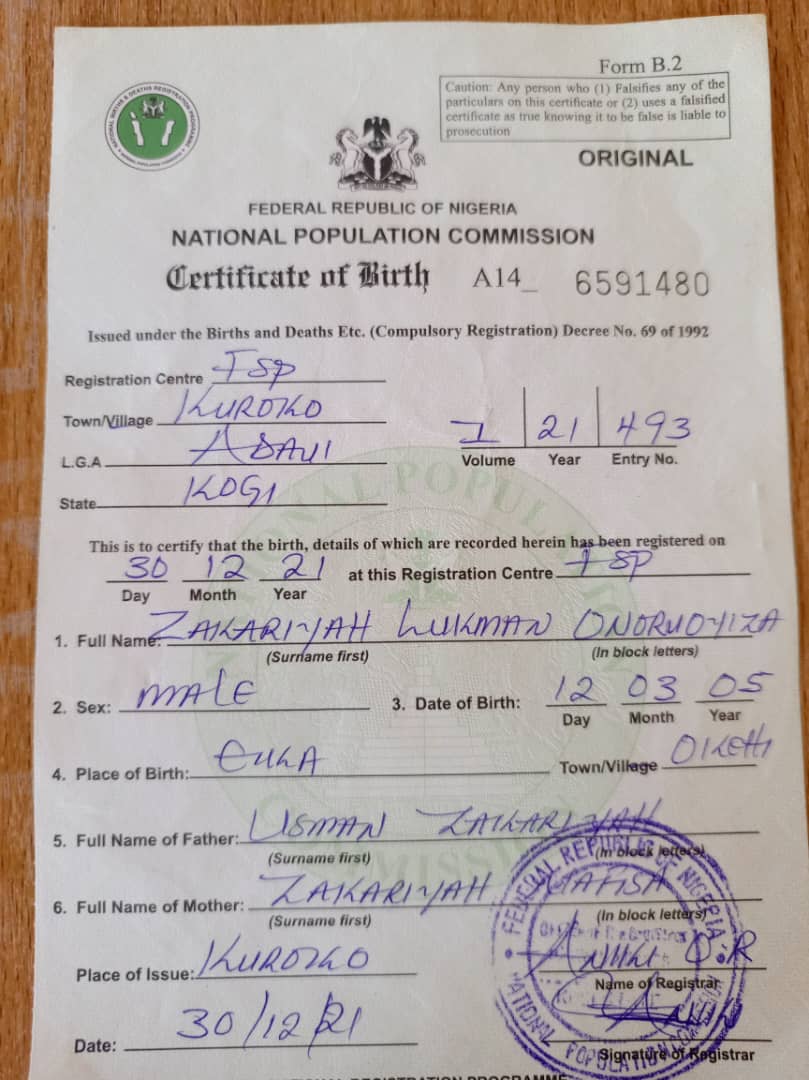 Form B.2
Caution: Any person who (1) Falsifies any of the
particulars on this certificate or (2) uses a falsified
certificate as true knowing it to be false is liable to
prosecution
NATIONAL BIRTHS & DEATHS REGISTRATION PROGRAMME
NATIONAL POPULATION COMMISSION
ORIGINAL
FEDERAL REPUBLIC OF NIGERIA
NATIONAL POPULATION COMMISSION
Certificate of Birth A14_ 6591480
Issued under the Births and Deaths Etc. (Compulsory Registration) Decree No. 69 of 1992
Registration Centre
Town/Village KUROKO
L.G.A ADAVI
State KOGI
I 21 493
Volume Year Entry No.
This is to certify that the birth, details of which are recorded herein has been registered on
30 12 21 at this Registration Centre
Day Month Year
1. Full Name: ZAKARIYAH LUKMAN ONORUOYIZA
(Surname first) (In block letters)
2. Sex: MALE 3. Date of Birth: 12 03 05
Day Month Year
4. Place of Birth: Town/Village OKEHI
5. Full Name of Father: USMAN ZAKARIYAH
(Surname first) (In block letters)
6. Full Name of Mother: ZAKARIYAH
(Surname first) (In block letters)
Place of Issue: KUROKO
Name of Registrar
Date: 30/12/21
Signature of Registrar
FEDERAL REPUBLIC OF NIGERIA
NATIONAL POPULATION COMMISSION